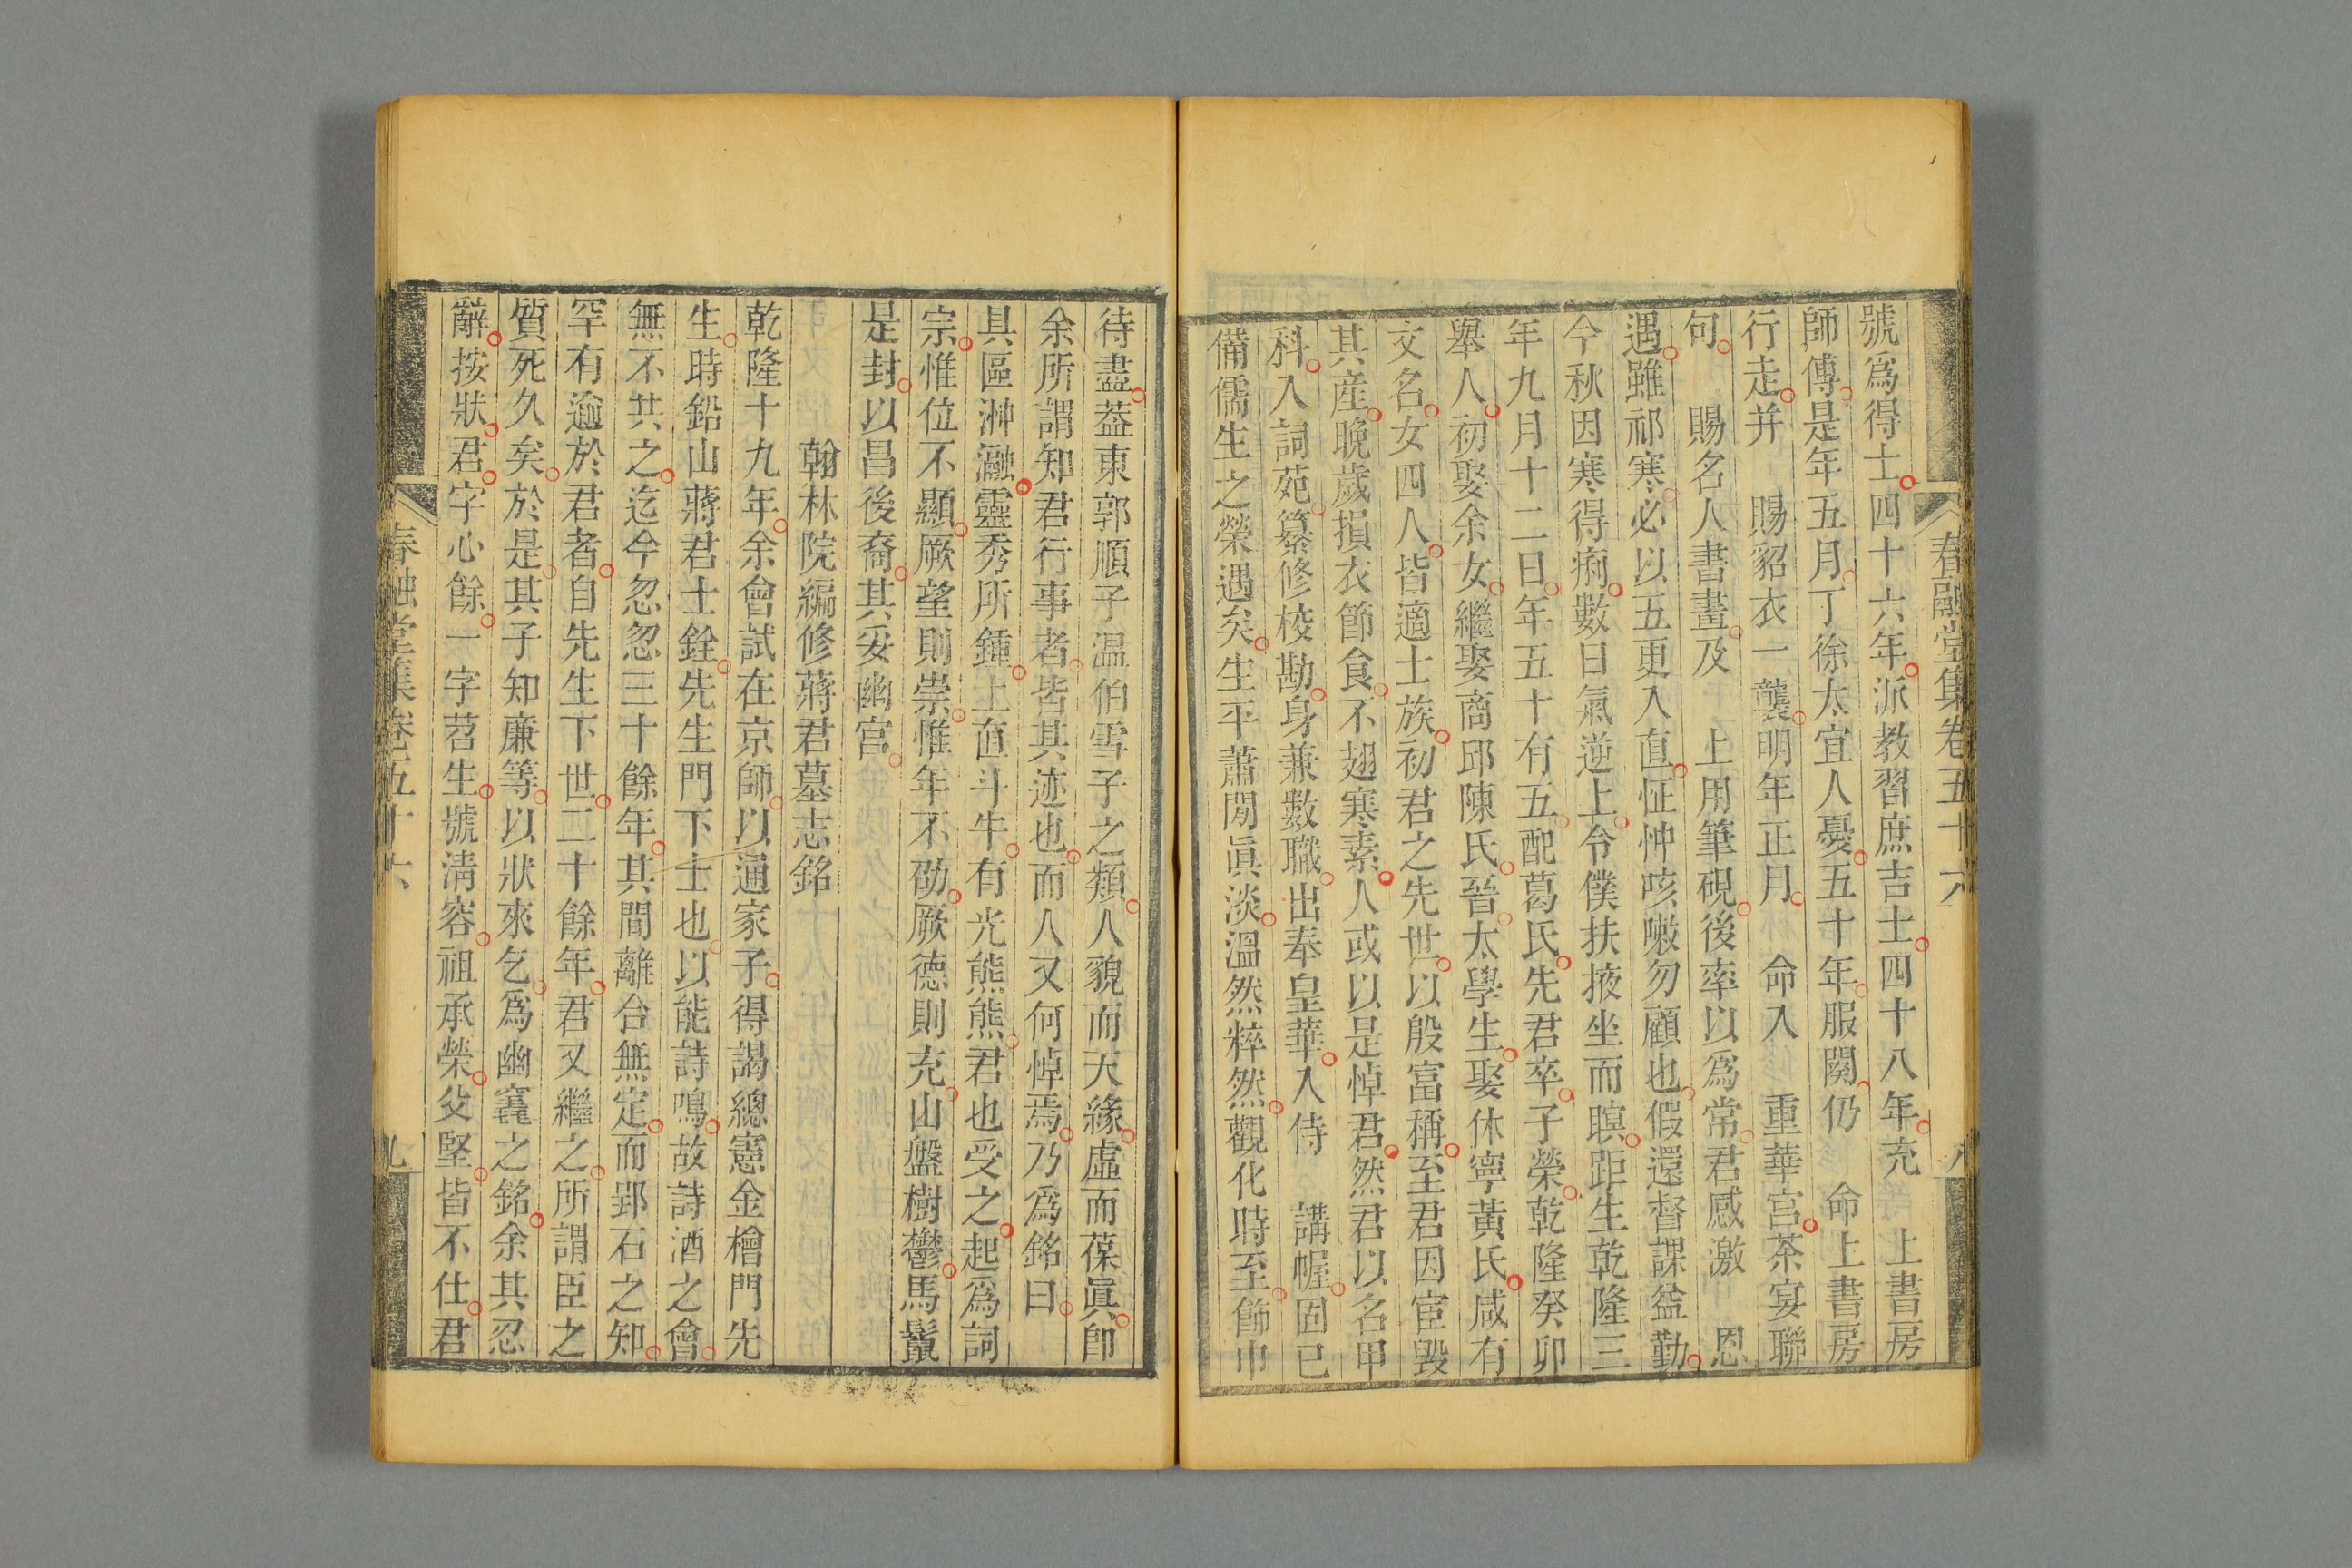 號爲得士四十六年派教習庶吉士四十八年充　上書房
師傅是年五月丁徐太宜人憂五十年服闋仍　命上書房
行走并　賜貂衣一襲明年正月　命入　重華宮茶宴聯
句　賜名人書畫及　上用筆硯後率以爲常君感激　恩
遇雖祁寒必以五更入直怔忡咳嗽勿顧也假還督課益勤
今秋因寒得痢數日氣逆上令僕扶掖坐而瞑距生乾隆三
年九月十二日年五十有五配葛氏先君卒子榮乾隆癸卯
舉人初娶余女繼娶商邱陳氏晉太學生娶休寧黃氏咸有
文名女四人皆適士族初君之先世以殷富稱至君因宦毀
其產晚歲損衣節食不翅寒素人或以是悼君然君以名甲
科入詞苑纂修校勘身兼數職出奉皇華入侍　講幄固已
備儒生之榮遇矣生平蕭閒眞淡溫然粹然觀化時至飾巾
春融堂集卷五十六
八
待盡葢東郭順子温伯雪子之類人貌而天緣虛而葆眞卽
余所謂知君行事者皆其迹也而人又何悼焉乃爲銘曰
具區沖瀜靈秀所鍾上直斗牛有光熊熊君也受之起爲詞
宗惟位不顯厥望則崇惟年不劭厥德則充山盤樹鬱馬鬣
是封以昌後裔其妥幽宮
翰林院編修蔣君墓志銘
乾隆十九年余會試在京師以通家子得謁總憲金檜門先
生時鉛山蔣君士銓先生門下士也以能詩鳴故詩酒之會
無不共之迄今忽忽三十餘年其間離合無定而郢石之知
罕有逾於君者自先生下世二十餘年君又繼之所謂臣之
質死久矣於是其子知廉等以狀來乞爲幽竁之銘余其忍
辭按狀君字心餘一字苕生號清容祖承榮父堅皆不仕君
春融堂集卷五十六
九